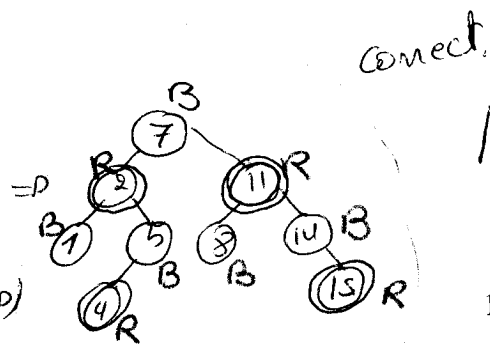 Correct.
B
7
R
2
11
R
=D
B
1
5
B
8
B
14
B
4
R
15
R
D)